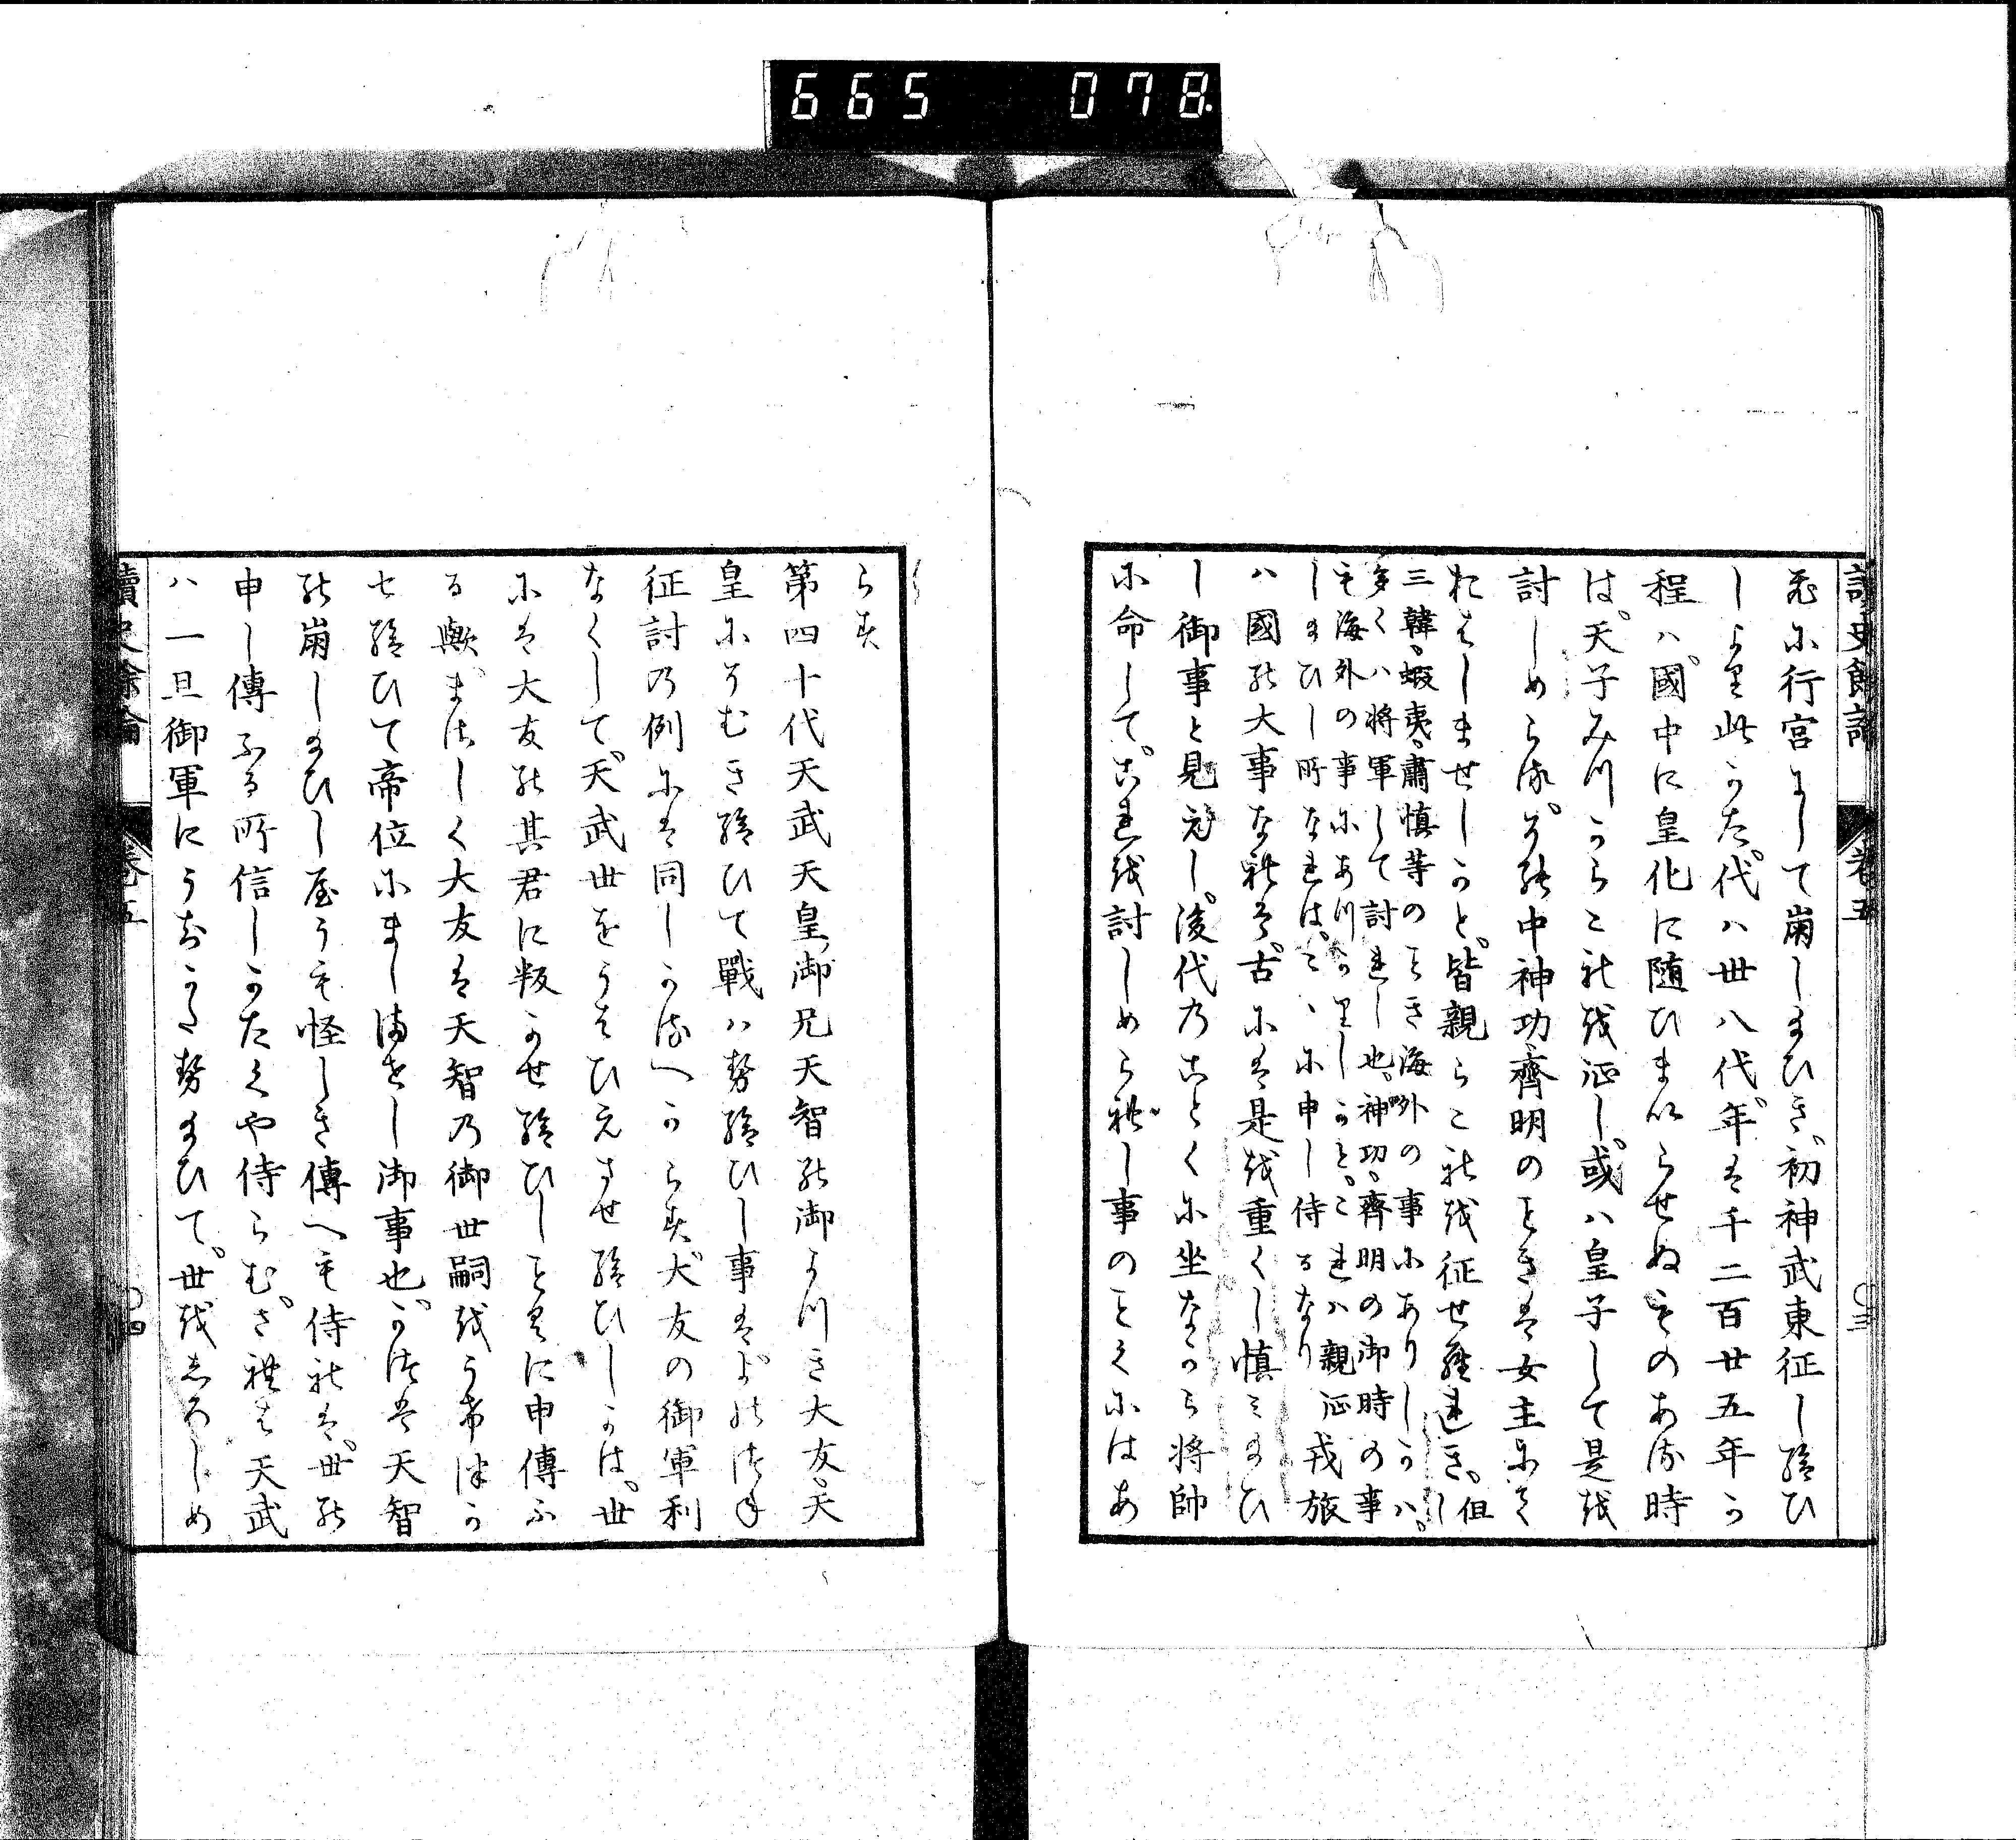 665 078
讀史餘論 巻五 〇三
の行宮にして崩し給ひき、初神武東征し給ひ
しより此かた、代ハ卅八代、年は千二百廿五年か
程ハ、國中に皇化に随ひまいらせぬものある時
は、天子みつからこれを征し、或ハ皇子して是を
討しめらる、その中神功齊明のときは女主にて
おはしませしかと、皆親らこれを征せられき、但し
三韓、蝦夷、肅慎等のとき海外の事にありしかハ、
多くハ将軍して討れし也、神功、齊明の御時の事
も海外の事にありつかりしかと、これハ親征戎旅
しまひし所なれは、こゝに申し侍るなり
ハ國の大事なれは、古には是を重くし慎ミ給ひ
し御事と見えし、後代のことくに坐なから将帥
に命して、これを討しめられし事のことくにはあ
らす
第四十代天武天皇、御兄天智の御よつき大友、天
皇にそむき給ひて戰ハ勢給ひし事は、よのつね
征討の例には同しかるへからす、大友の御軍利
なくして、天武世をうはひえさせ給ひしかは、世
には大友の其君に叛かせ給ひしことくに申傳ふ
る歟、まさしく大友は天智の御世嗣をうけつか
せ給ひて帝位にましませし御事也、かつは天智
の崩しまひしやうも怪しき傳へも侍れは、世の
申し傳ふる所信しかたくや侍らむ、されは天武
ハ一旦御軍にうちかち勢まひて、世をしろしめ
讀史餘論 巻五 〇四